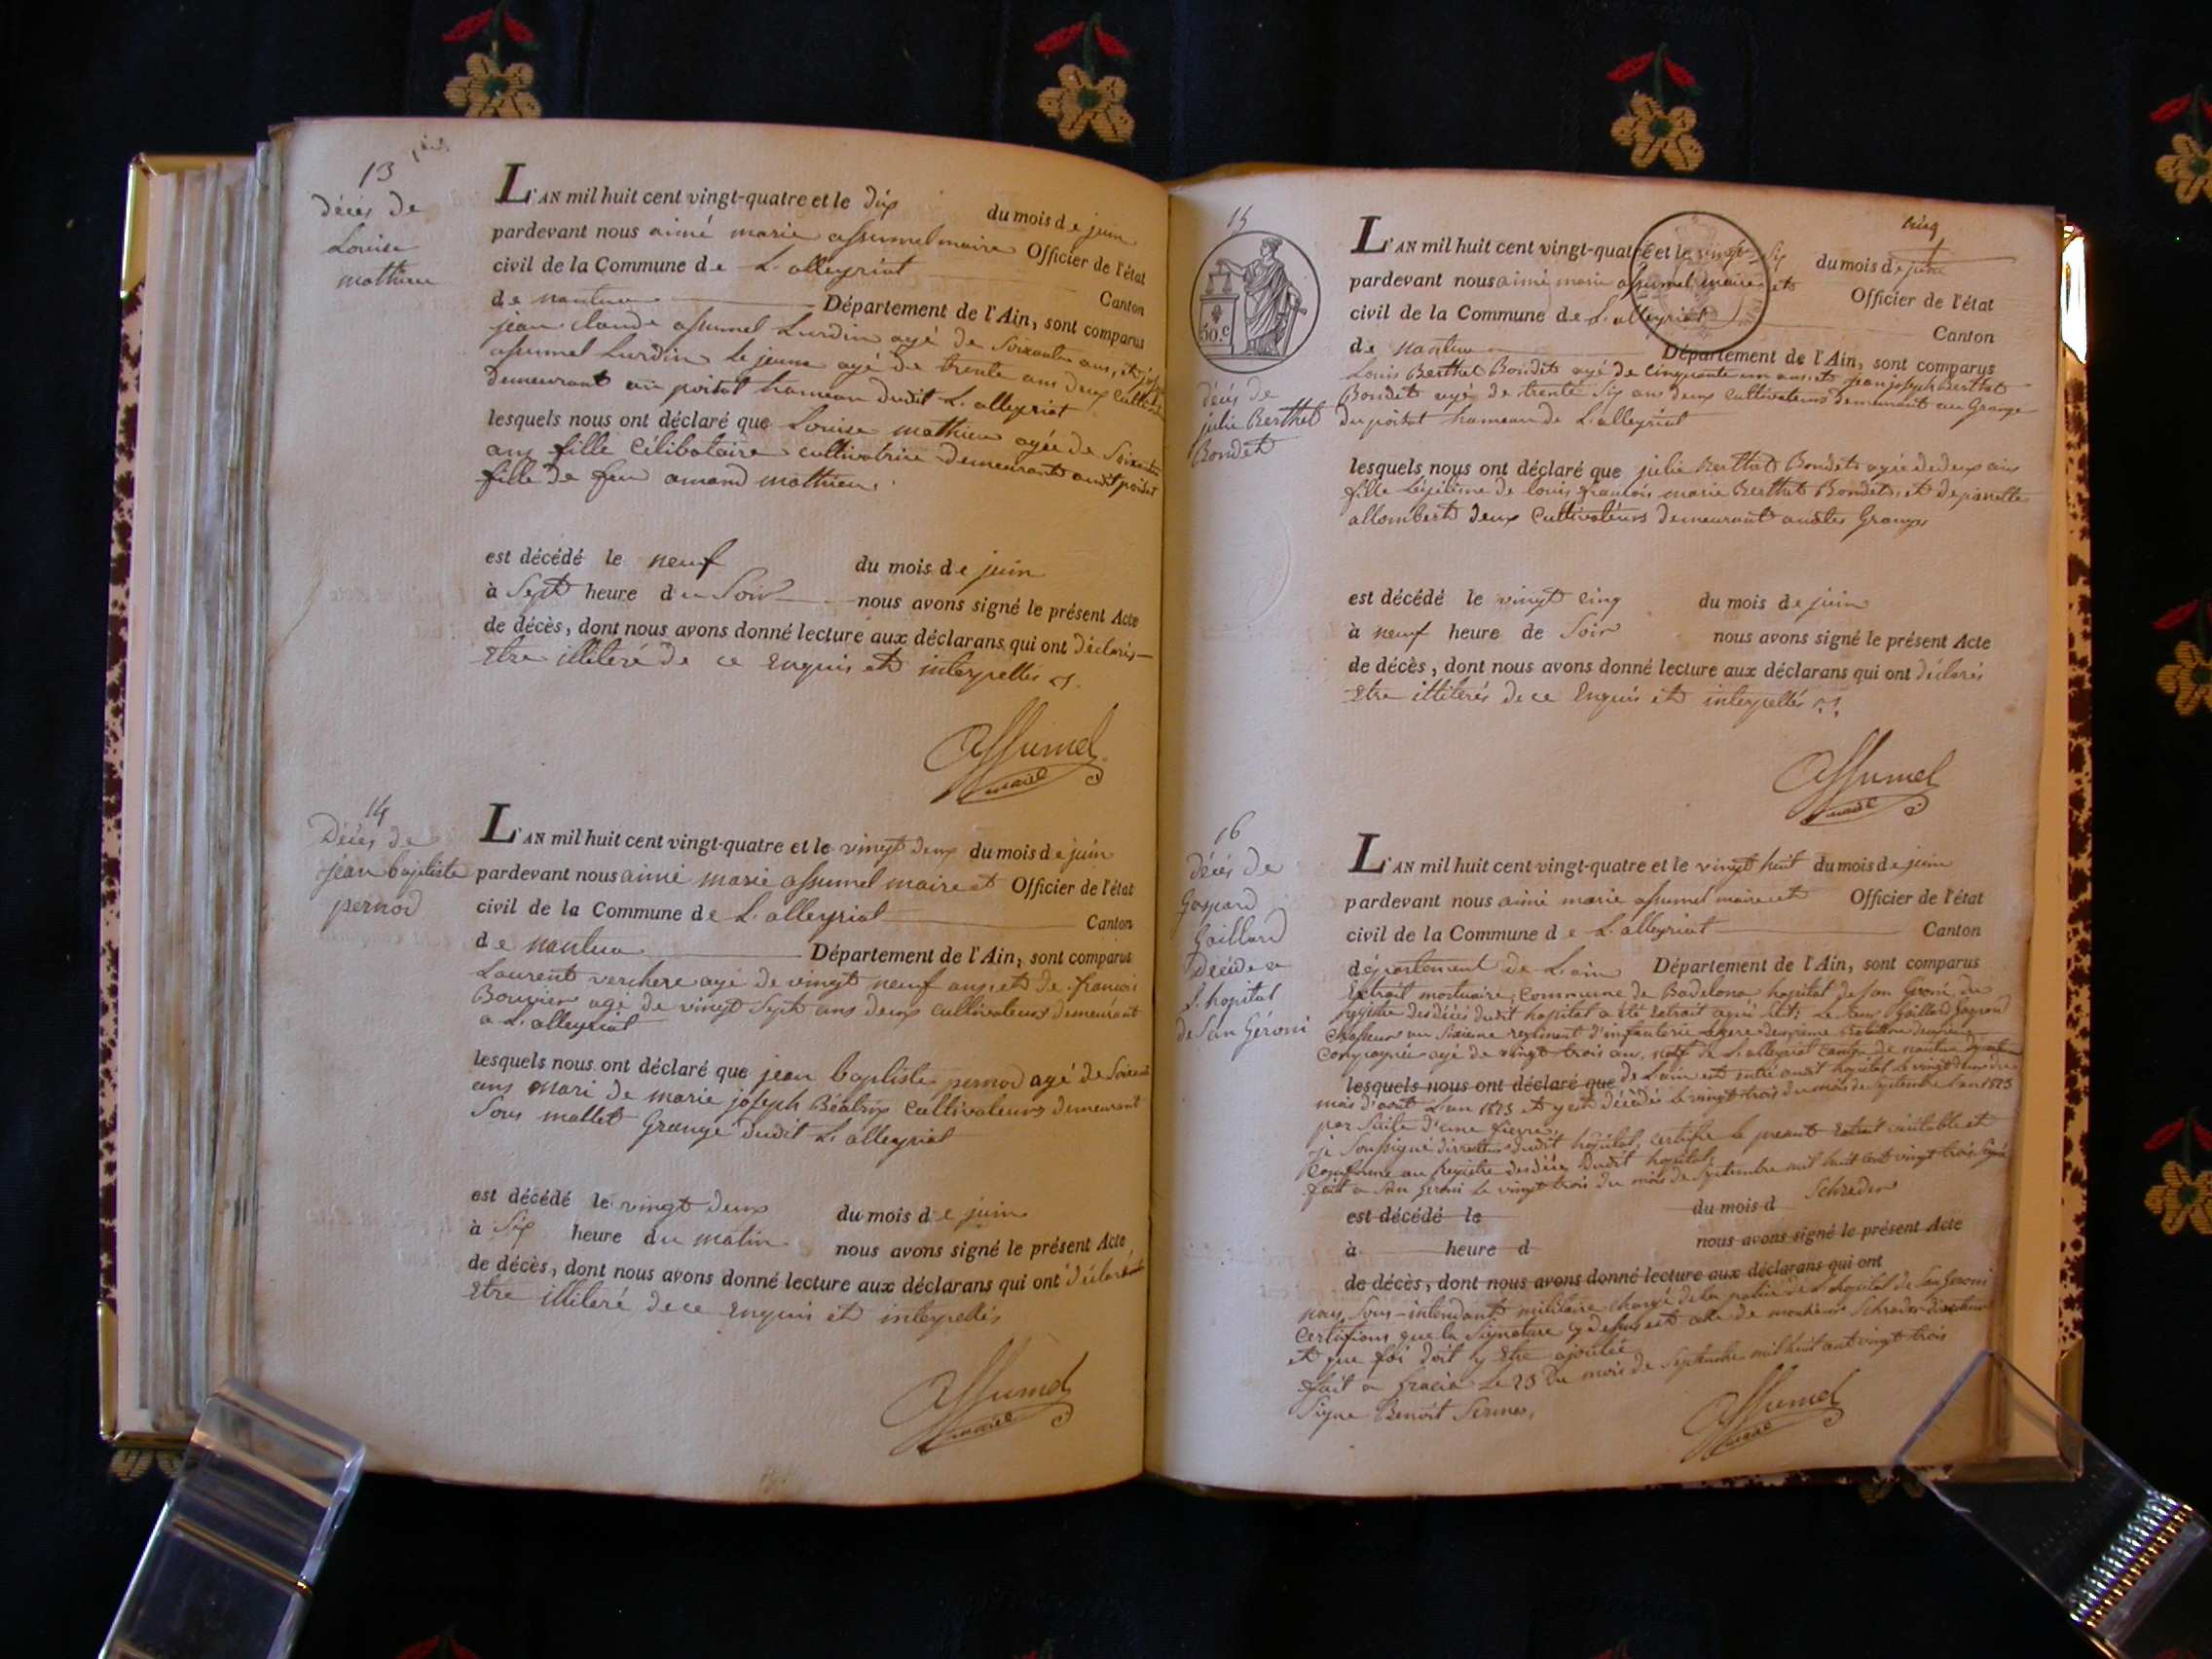 13
décès de
Louise
mathieu
L'AN mil huit cent vingt-quatre et le dix du mois de juin
pardevant nous aimé marie assumel maire Officier de l'état
civil de la Commune de L'alleyriat Canton
de nantua Département de l'Ain, sont comparus
jean claude assumel Lurdin agé de Soixante ans, et
assumel Lurdin le jeune agé de trente ans deux
demeurant au poisat hameau dudit L'alleyriat
lesquels nous ont déclaré que Louise mathieu agée de Soixante
ans fille Célibataire cultivatrice demeurant audit poisat
fille de feu amand mathieu
est décédé le neuf du mois de juin
à Sept heure du Soir nous avons signé le présent Acte
de décès, dont nous avons donné lecture aux déclarans qui ont déclarés
Etre illiteré de ce Enquis et interpellés
Assumel
maire
14
Décès de
jean baptiste
pernod
L'AN mil huit cent vingt-quatre et le vingt deux du mois de juin
pardevant nous aimé marie assumel maire et Officier de l'état
civil de la Commune de L'alleyriat Canton
de nantua Département de l'Ain, sont comparus
Laurent verchere agé de vingt neuf ans et de françois
Bouvier agé de vingt Sept ans deux cultivateurs demeurant
a L'alleyriat
lesquels nous ont déclaré que jean baptiste pernod agé de
ans mari de marie joseph Béatrix Cultivateurs demeurant
Sous mallet Grange dudit L'alleyriat
est décédé le vingt deux du mois de juin
à Six heure du matin nous avons signé le présent Acte
de décès, dont nous avons donné lecture aux déclarans qui ont déclaré
Etre illiteré de ce Enquis et interpellés
Assumel
maire
15
cinq
50.c
décès de
julie Berthet
Bondet
L'AN mil huit cent vingt-quatre et le vingt Six du mois de juin
pardevant nous aimé marie assumel maire et Officier de l'état
civil de la Commune de L'alleyriat Canton
de Nantua Département de l'Ain, sont comparus
Louis Berthet Bondet agé de Cinquante un ans et jean joseph Berthet
Bondet agé de trente Six ans deux Cultivateurs demeurant au Grange
du poisat hameau de L'alleyriat
lesquels nous ont déclaré que julie Berthet Bondet agée de deux ans
fille Légitime de louis françois marie Berthet Bondet, et de
allombert deux Cultivateurs demeurant audites Granges
est décédé le vingt cinq du mois de juin
à neuf heure de Soir nous avons signé le présent Acte
de décès, dont nous avons donné lecture aux déclarans qui ont déclarés
Etre illiterés de ce Enquis et interpellés
Assumel
maire
16
décès de
Gaspard
Gaillard
Décédé a
L. hopital
de San Géroni
L'AN mil huit cent vingt-quatre et le vingt huit du mois de juin
pardevant nous aimé marie assumel maire et Officier de l'état
civil de la Commune de L'alleyriat Canton
département de L'ain Département de l'Ain, sont comparus
Extrait mortuaire, Commune de Badelona hopital de San Géroni, du
registre des décès dudit hopital a été Extrait ce qui Suit: Le Sieur Gaillard Gaspard
Chasseur au Sixieme regiment d'infanterie Legere deuxieme Bataillon deuxieme
Compagnie agé de vingt trois ans, natif de L'alleyriat Canton de nantua departement
lesquels nous ont déclaré que de L'ain est entré audit hopital Le vingt deux du
mois d'aout L'an 1823 et y est décédé Le vingt trois du mois de Septembre L'an 1823
par Suite d'une fievre,
je Soussigné directeur dudit hopital, certifie le present Extrait véritable et
Conforme au Registre des décès Dudit hopital,
fait a San Géroni Le vingt trois du mois de Septembre mil huit cent vingt trois Signé
Schreder
est décédé le du mois d
à heure d nous avons signé le présent Acte
de décès, dont nous avons donné lecture aux déclarans qui ont
nous Sous-intendant militaire chargé de la police de L'hopital de San Geroni
Certifions que la Signature est celle de monsieur Schreder directeur
et que foi doit y Etre ajoutée
fait a Gracia Le 23 Du mois de Septembre mil huit cent vingt trois
Signe Benoit
Assumel
maire